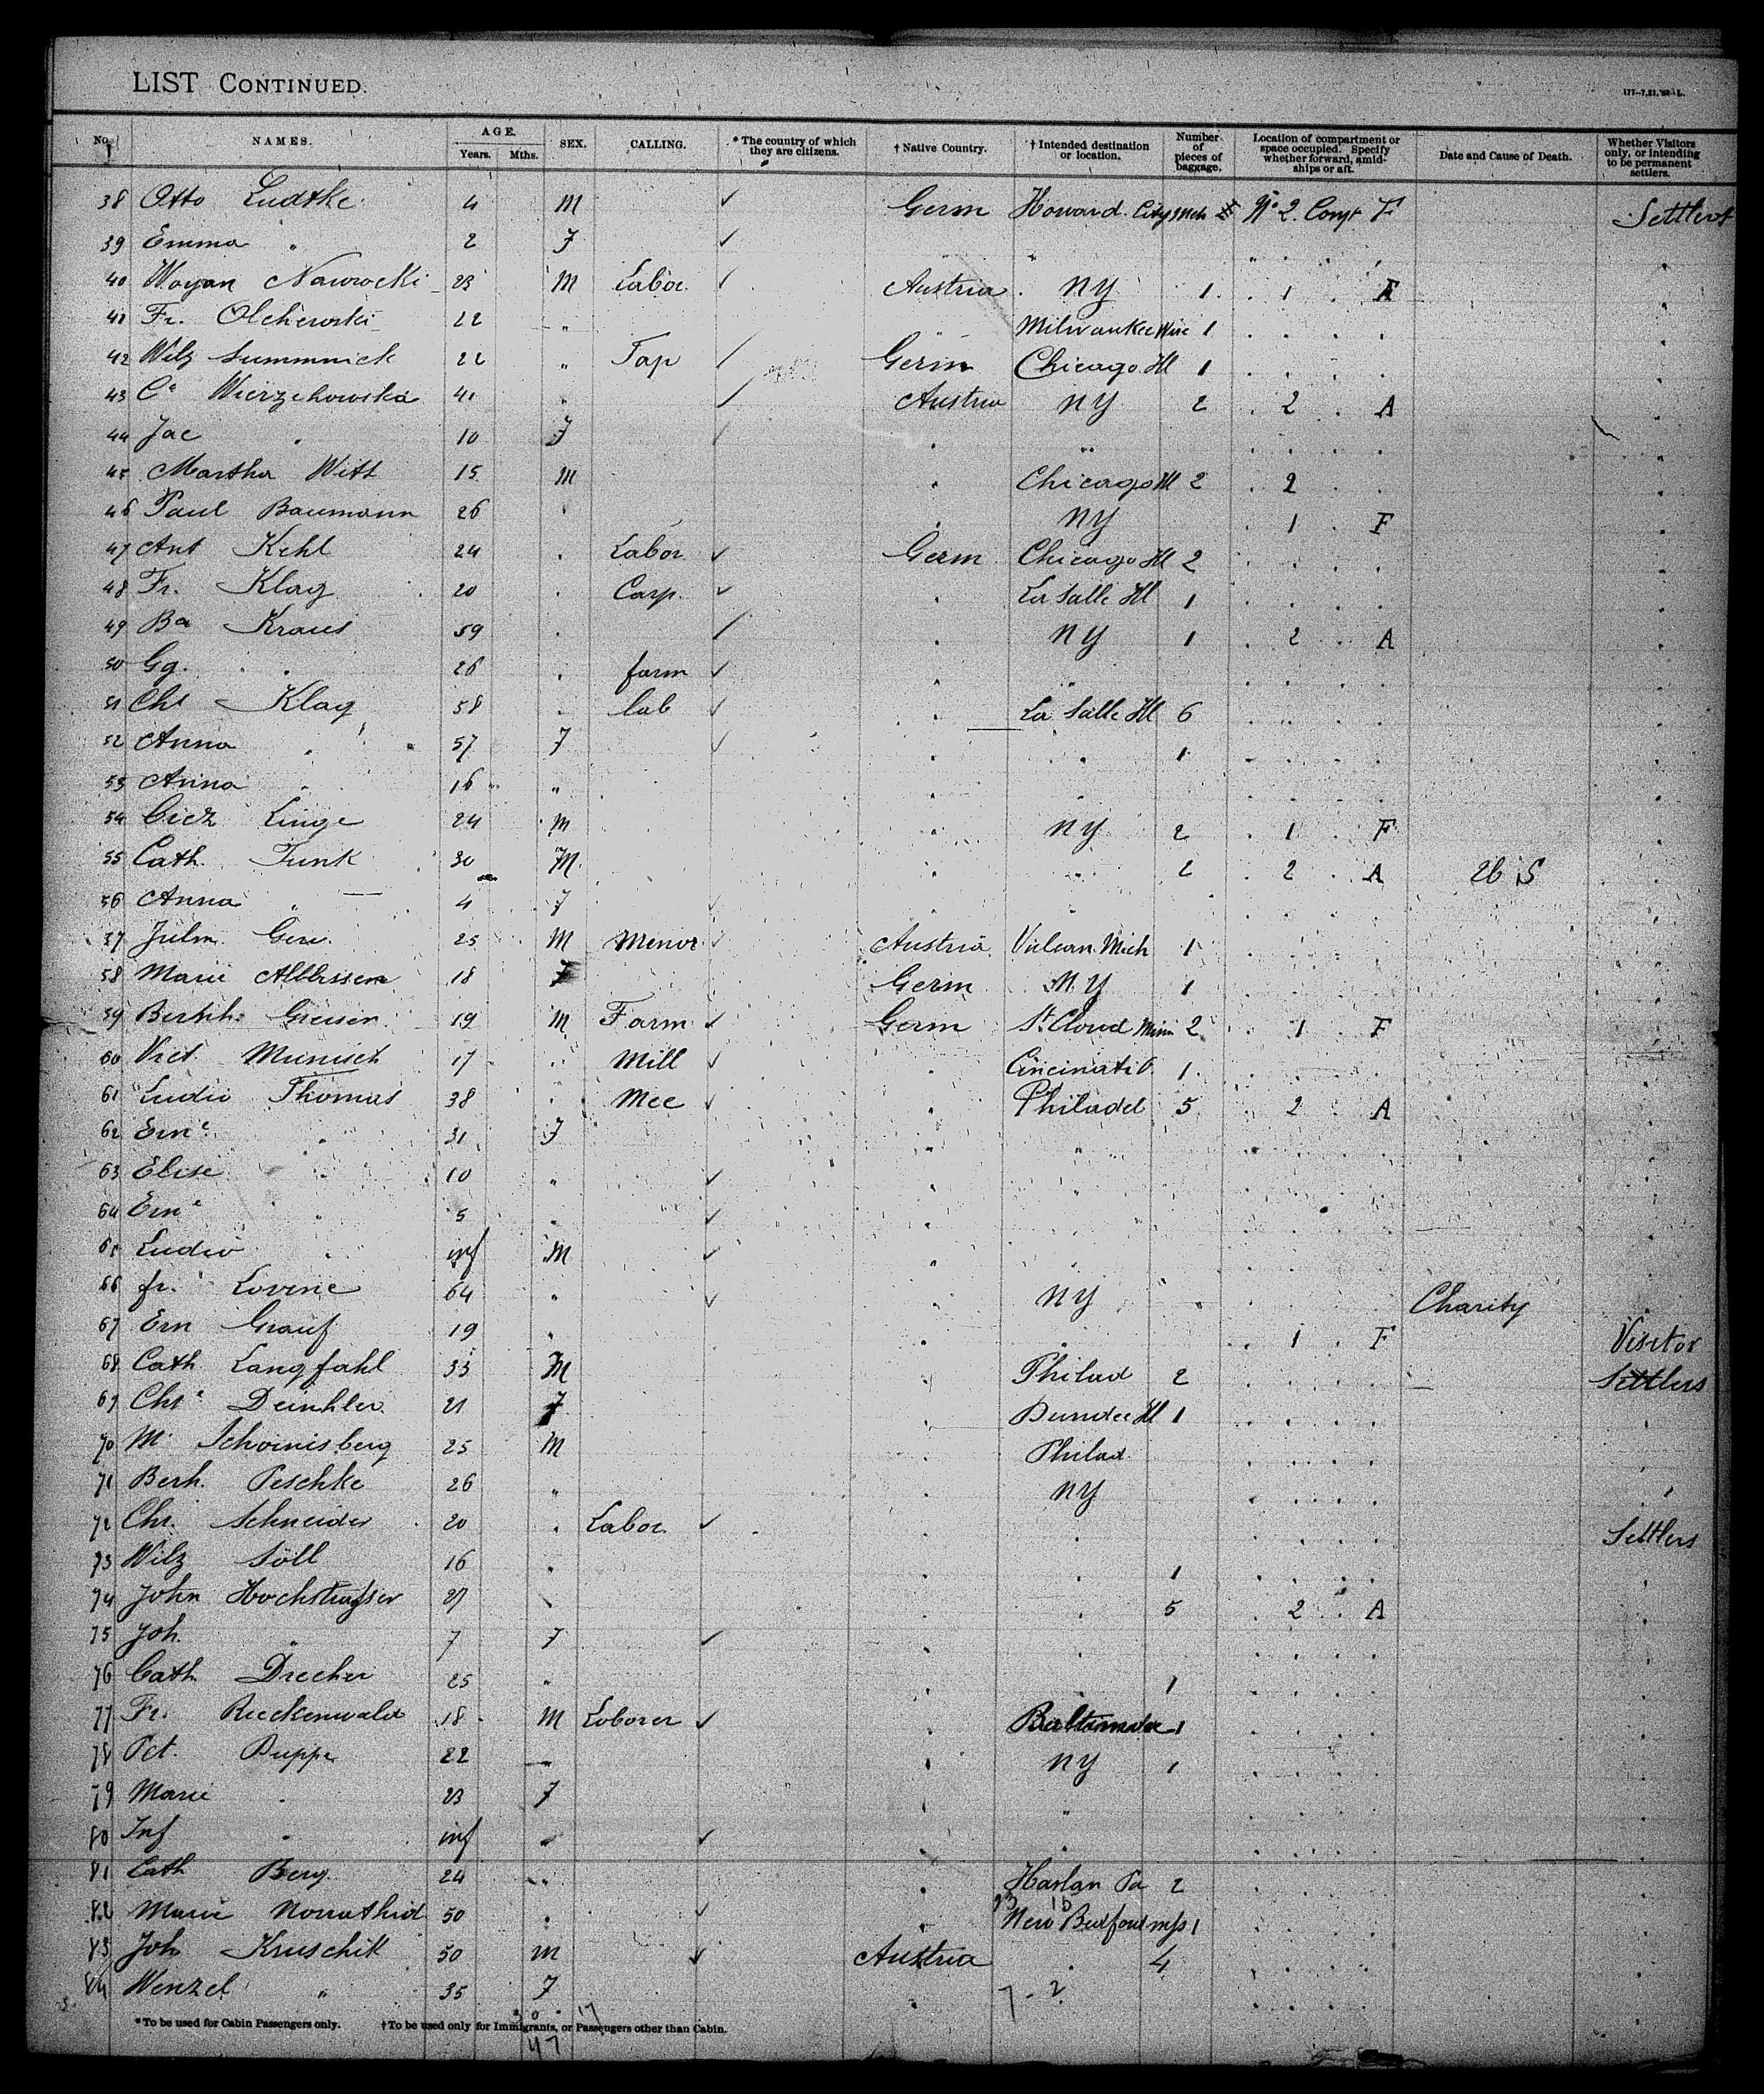 LIST CONTINUED.
No. NAMES. AGE. Years. Mths. SEX. CALLING. * The country of which they are citizens. † Native Country. † Intended destination or location. Number of pieces of baggage. Location of compartment or space occupied. Specify whether forward, amidships or aft. Date and Cause of Death. Whether Visitors only, or intending to be permanent settlers.
38 Otto Ludtke 4 M ✓ Germ Howard City Mch No 2. Compt F Settlers
39 Emma " 2 F ✓ "
40 Woyan Nawrocki 23 M Labor ✓ Austria NY 1 1 F
41 Fr. Olchewski 22 " Milwaukee Wisc 1
42 Wilz Summnick 22 " Tap / Germ Chicago Ill 1
43 Ce Wierzchowska 41 " / Austria NY 2 2 A
44 Jac " 10 F ✓ "
45 Martha Witt 15 M Chicago Ill 2 2
46 Paul Baumann 26 " NY 1 F
47 Ant Kehl 24 " Labor ✓ Germ Chicago Ill 2
48 Fr. Klag 20 " Carp. ✓ La Salle Ill 1
49 Ba Kraus 59 " / NY 1 2 A
50 Gg. " 26 " farm ✓ "
51 Chr Klag 58 " lab ✓ La Salle Ill 6
52 Anna " 57 F ✓ " 1
53 Anna " 16 " "
54 Linge 24 M NY 2 1 F
55 Cath. Funk 30 M " 2 2 A 26 S
56 Anna " 4 F ✓
57 Julm. Gere 25 M Minor ✓ Austria Vulcan Mich 1
58 Marie Albbrssen 18 F Germ N.Y 1
59 Bernh. Greiser 19 M Farm ✓ Germ St. Cloud Minn 2 1 F
60 Vict Munisch 17 " Mill ✓ Cincinati O. 1
61 Ludw Thomas 38 " Mec ✓ Philadel 5 2 A
62 Erne " 31 F "
63 Elise " 10 " ✓ "
64 Erne " 5 " ✓
65 Ludw " inf M ✓
66 fr. Lovine 64 " ✓ NY Charity
67 Ern Grauf 19 " " 1 F Visitor
68 Cath Langfahl 33 M Philad 2 Settlers
69 Chre Deinhler 21 F Dundee Ill 1
70 M. Schoinisberg 25 M Philad.
71 Berh. Peschke 26 " NY
72 Chr. Schneider 20 " Labor ✓ " Settlers
73 Wilz Söll 16 " " 1
74 John Hochstrasser 27 " " 5 2 A
75 Joh. " 7 F ✓ "
76 Cath Drecher 25 " " 1
77 Fr. Reeckenwald 18 M Laborer ✓ Baltimore 1
78 Pet. Duppe 22 — NY 1
79 Marie " 23 F "
80 Inf " inf " ✓ "
81 Cath Berg 24 " Harlan Pa 2
82 Marie Norrathrid 50 " ✓ New Bedford mss 1
83 Joh Kruschik 50 M ✓ Austria " 4
84 Wenzel " 35 F 7 - 2
*To be used for Cabin Passengers only. †To be used only for Immigrants, or Passengers other than Cabin.
47